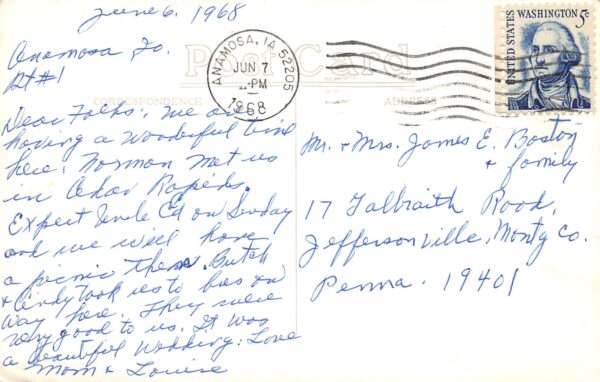 June 6, 1968
Anamosa Io.
Rt #1
Post Card
CORRESPONDENCE
ADDRESS
ANAMOSA, IA. 52205
JUN 7
PM
1968
UNITED STATES
WASHINGTON 5¢
Dear Folks: We are
having a wonderful time
here. Norman met us
in Cedar Rapids.
Expect Uncle Ed on Sunday
and we will have
a picnic then. Butch
& Cindy took us to bus on
way here. They were
very good to us. It was
a beautiful Wedding. Love
Mom & Louise
Mr. & Mrs. James E. Boston
& family
17 Galbraith Road,
Jeffersonville, Montg Co.
Penna. 19401